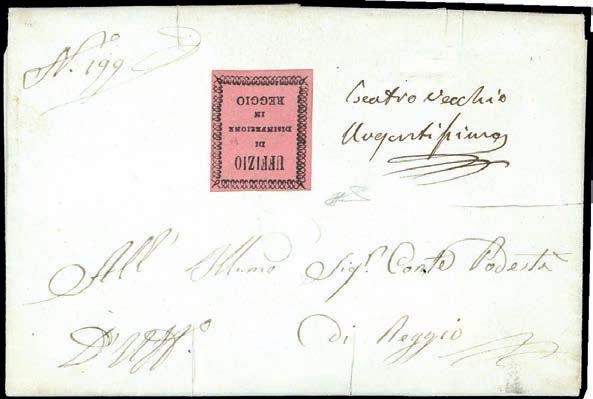 N.° 199
UFFIZIO
DI
DISINFEZIONE
IN
REGGIO
Teatro Vecchio
Urgentissima
All' Illmo Sig.r Conte Podestà
D'Uff.° di Reggio